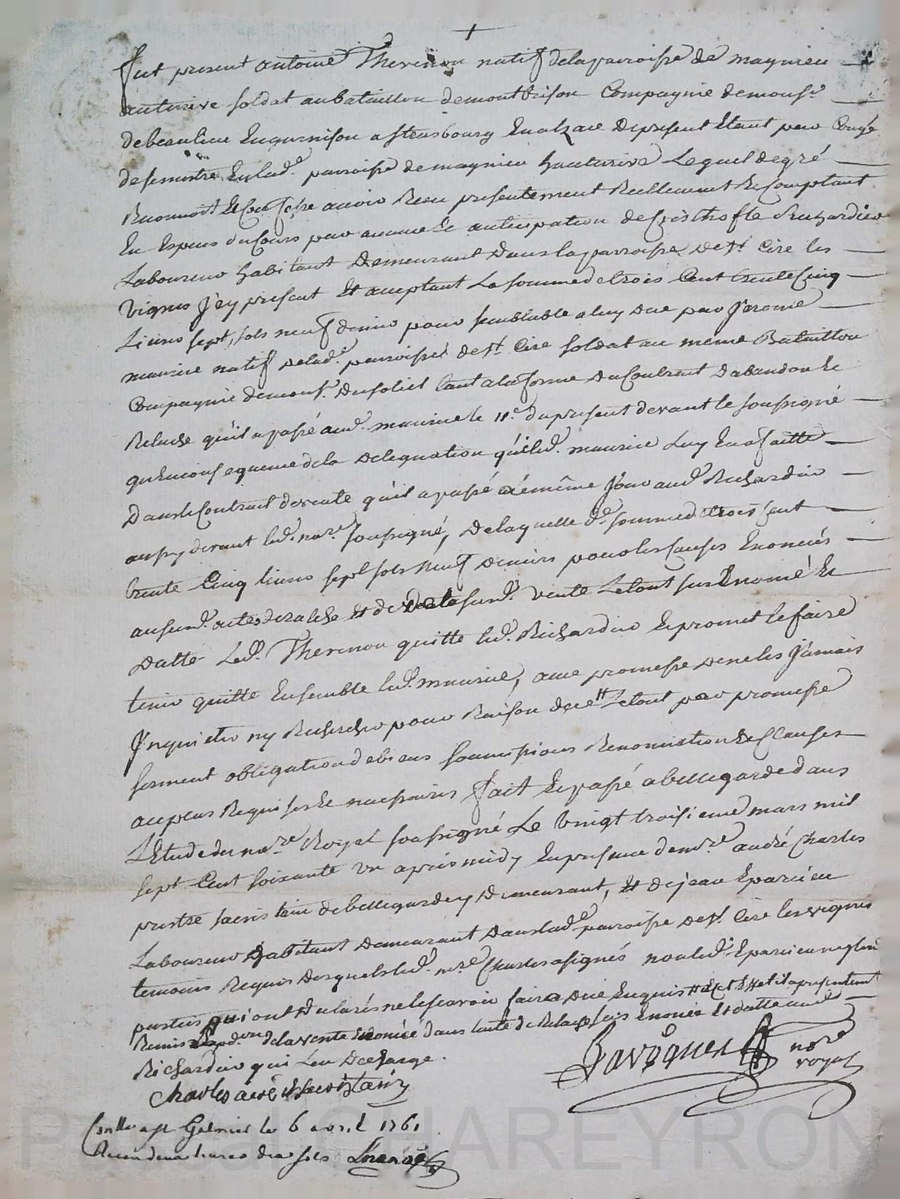 +
fut present antoine Therenon natif dela parroisse de magnieu
hauterive soldat au bataillon de montbrison Compagnie de mons.r
de beaulieu En garnison a strasbourg En alzace De present Etant par Congé
de semestre En lad.e parroisse de magnieu hauterive Lequel de gré
Reconnoit Et Confesse avoir Recu presentement Reellement Et Comptant
En Espece du Cours par avance Et anticipation de Cristhofle Richardier
Laboureur habitant Demeurant Dans la parroisse De st Cire les
vignes J'cy present Et acceptant La somme de trois Cent trente Cinq
Livres sept sols neuf deniers pour semblable a luy Due par Jerome
maurice natif De lad.e parroisse de st Cire soldat au même Bataillon
Compagnie de mons.r Dufoliet tant a la forme Du Contrat D'abandon Et
Relache qu'il a passé aud. maurice le 11.e du present devant le soussigné
qu'En Consequence de la Delegation que led. maurice Luy En a faitte
Dans le Contrat de vente qu'il a passé Le même Jour aud. Richardier
aussy devant led. no.re soussigné, De laquelle d.e somme de trois Cent
trente Cinq livres sept sols neuf Deniers pour les Causes Enoncés
au susd. acte de relache Et de vente Le tout sus Enoncé Et
Datté Led. Therenon quitte led. Richardier Et promet le faire
tenir quitte Ensemble led. maurice, avec promesse De ne les J'amais
J'nquieter ny Rechercher pour Raison de ce Le tout par promesse
serment obligation de biens soumissions Renonciations Et Clauses
au peux Requises Et necessaires fait Et passé a bellegarde dans
L'Etude du no.re Royal soussigné Le vingt troisieme mars mil
sept Cent soixante un apres midy En presence de m.re andré Charles
prestre sacristain de bellegarde y Demeurant, Et de jean Eparcieu
Laboureur habitant Demeurant Dans lad.e parroisse De st Cire les vignes
temoins Requis Desquels led. m.re Charles a signés non led. Eparcieu ny les
parties qui ont Declarés ne le scavoir faire De ce Enquis Et a présentement
Remis de la vente Enoncée dans l'acte de Relache sus Enoncé Et datté aud.
Richardier qui L'en Decharge.
Charles andré sacristain
Javogues no.re
royal
Con.llé a st Galmier le 6 avril 1761
Recu douze sols
Pascal CHAREYRON